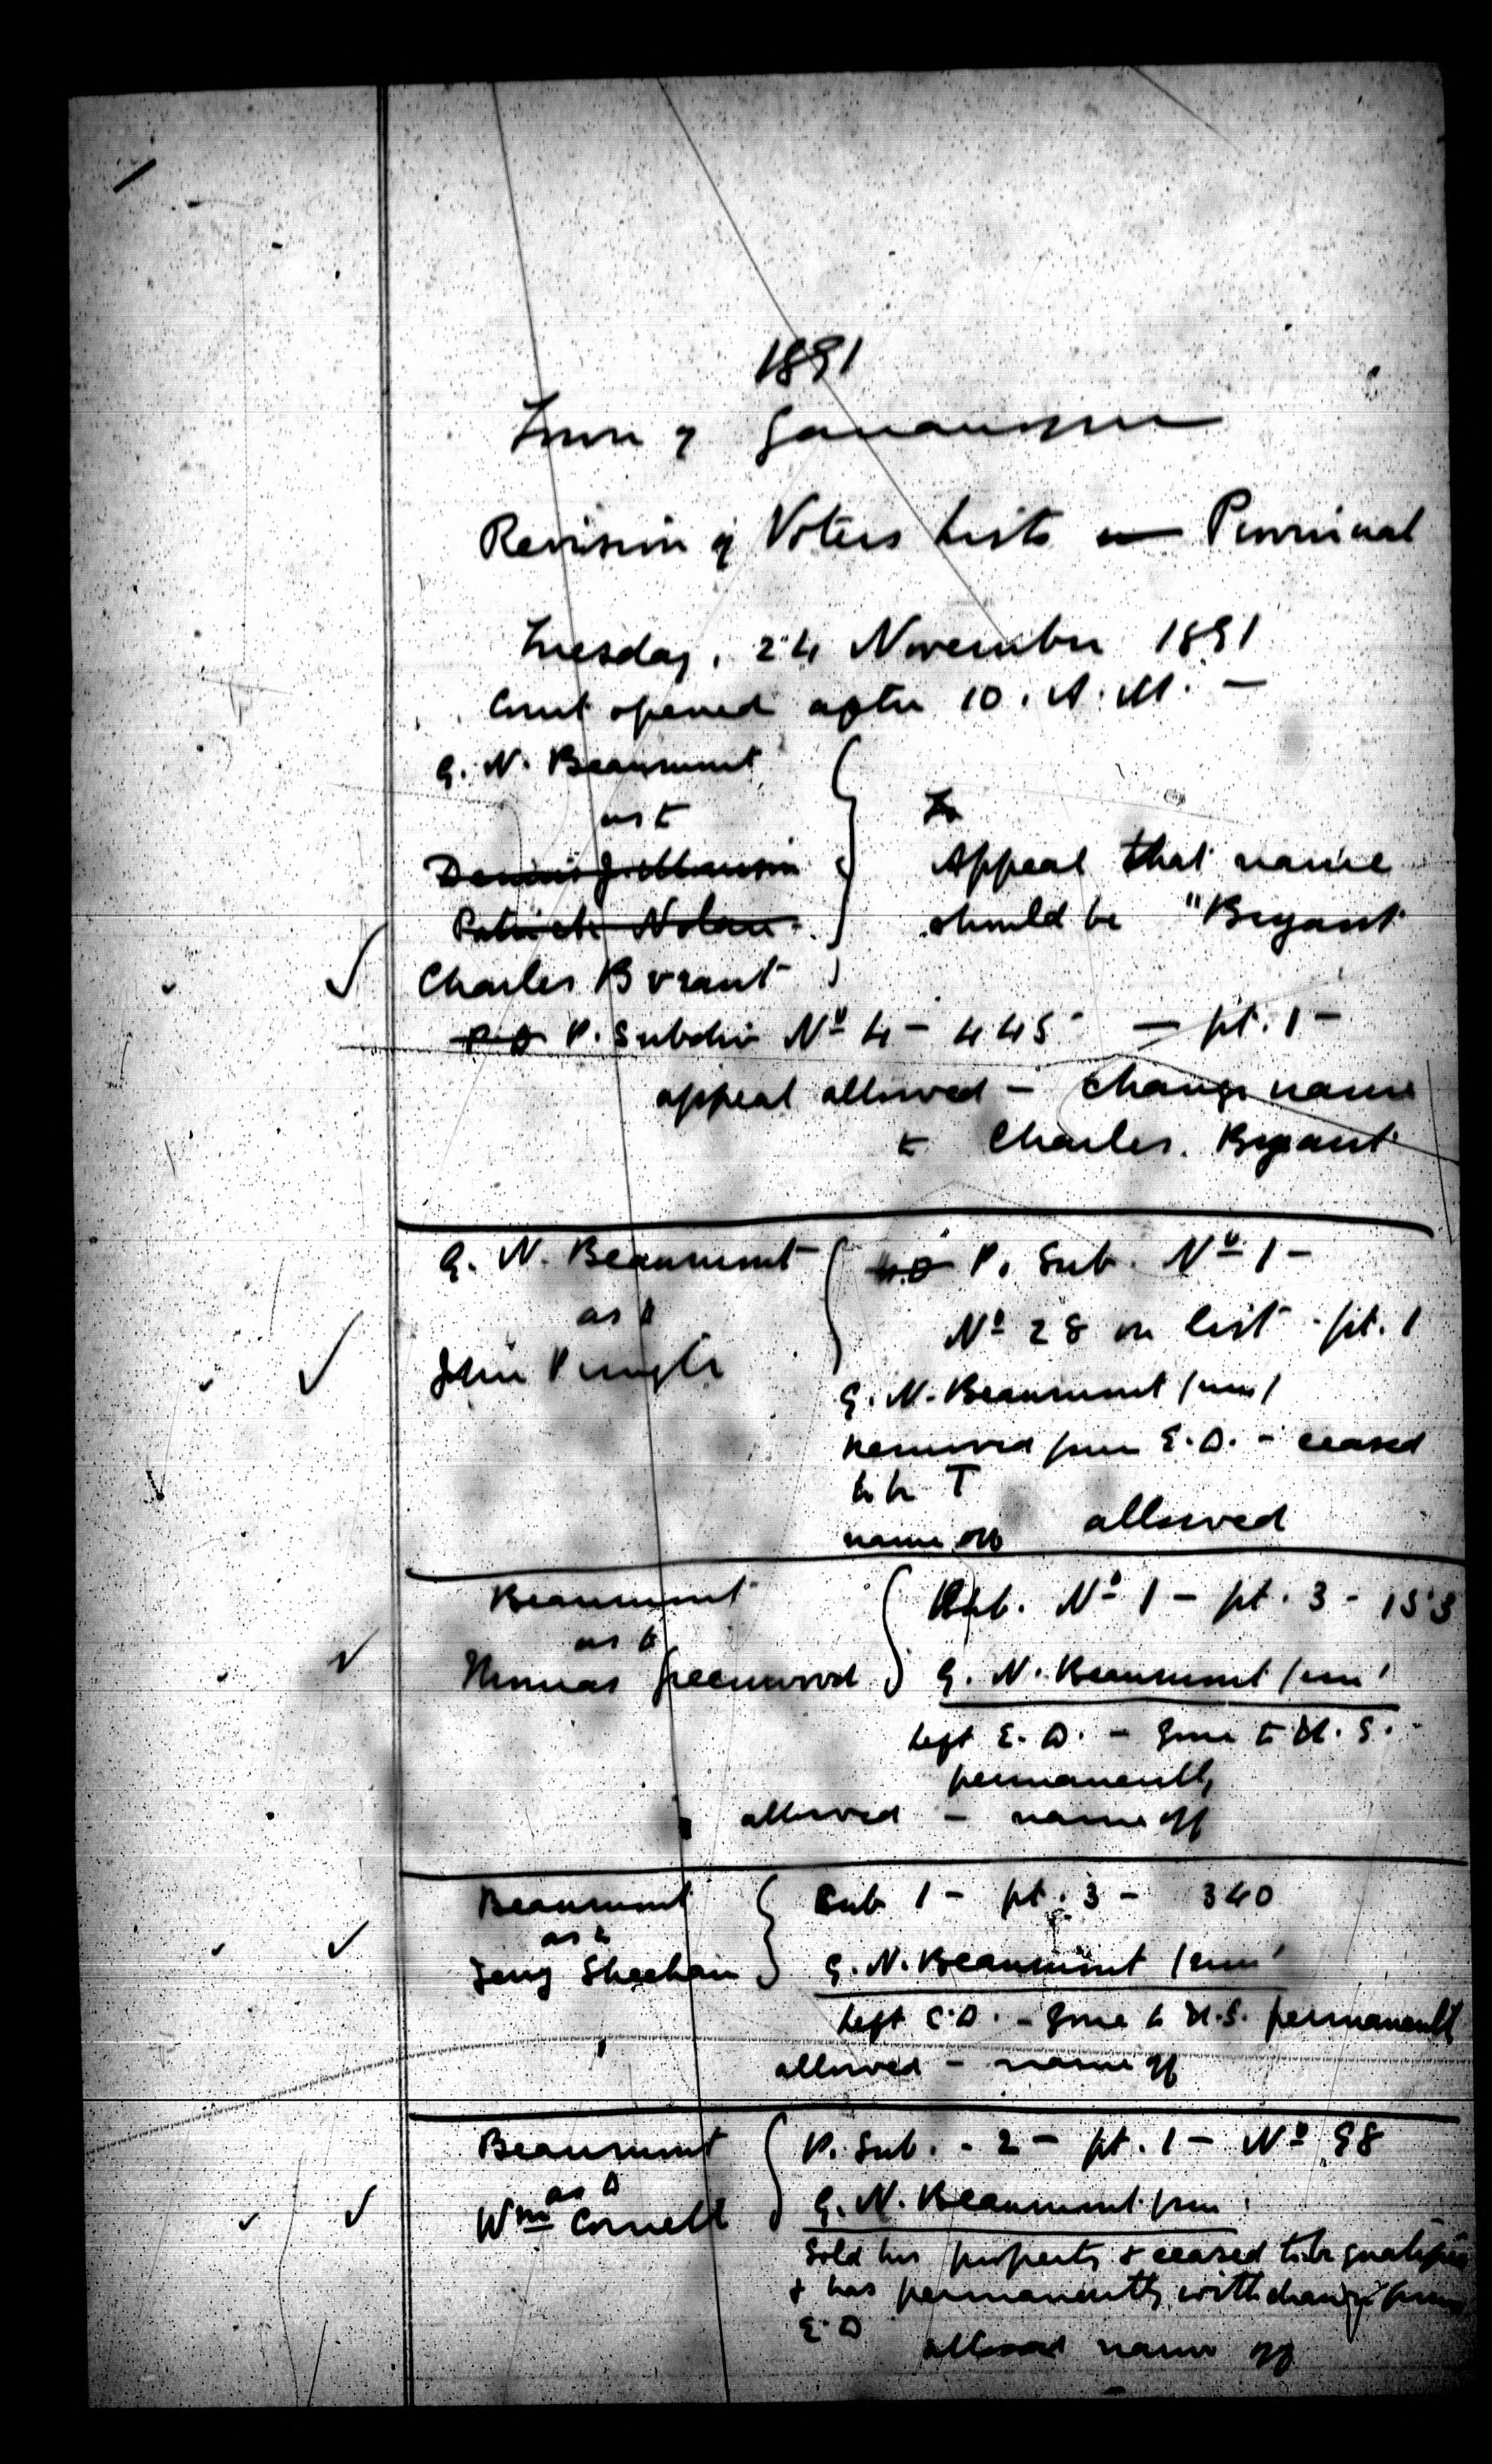 1891
Town of Gananoque
Revision of Voters Lists — Provincial
Tuesday, 24 November 1891
Court opened after 10. A. M. —
G. N. Beaumont
as to
Patrick Nolan
Charles Bryant
Appeal that name
should be "Bryant
P. Subdiv No 4 - 445 — pt. 1 -
appeal allowed - change name
to Charles. Bryant
G. N. Beaumont
as to
John Pringle
P. Sub. No 1 -
No 28 on list - pt. 1
G. N. Beaumont /sworn/
Removed from E. D. - ceased
to be T
name off allowed
Beaumont
as to
Thomas Greenwood
Sub. No 1 - pt. 3 - 153
G. N. Beaumont /sworn/
Left E. D. - gone to U. S. -
permanently
allowed - name off
Beaumont
as to
Jerry Sheehan
Sub 1 - pt. 3 - 340
G. N. Beaumont /sworn/
Left E. D. - gone to U. S. permanently
allowed - name off
Beaumont
as to
Wm Cornett
P. Sub. - 2 - pt. 1 - No 98
G. N. Beaumont /sworn
Sold his property & ceased to be qualified
& has permanently withdrawn from
E. D
allowed name off